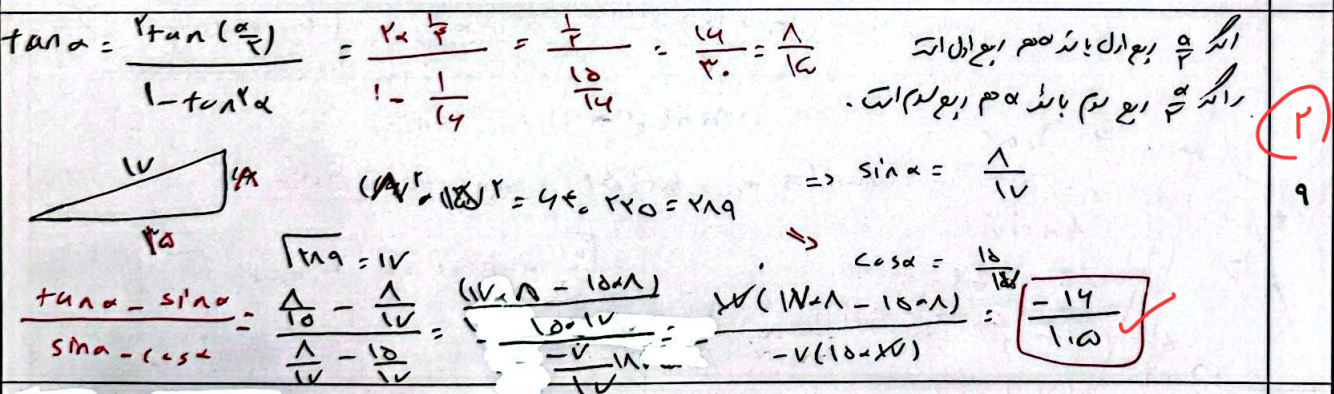 tan α = ۲tan(α/۲) / ۱-tan²α = ۲×۱/۴ / ۱-۱/۱۶ = ۱/۲ / ۱۵/۱۶ = ۱۶/۳۰ = ۸/۱۵ اگر α/۲ ربع اول باشد α هم ربع اول است
و اگر α/۲ ربع سوم باشد α هم ربع سوم است.
۲
۱۷ ۸ (۸)² + (۱۵)² = ۶۴ + ۲۲۵ = ۲۸۹ => sin α = ۸/۱۷ ۹
۱۵
√۲۸۹ = ۱۷ => cos α = ۱۵
tan α - sin α / sin α - cos α = ۸/۱۵ - ۸/۱۷ / ۸/۱۷ - ۱۵/۱۷ = (۱۷×۸ - ۱۵×۸) / ۱۵×۱۷ / -۷/۱۷ = ۱۷(۱۷×۸ - ۱۵×۸) / -۷(۱۵×۱۷) = -۱۶/۱۰۵